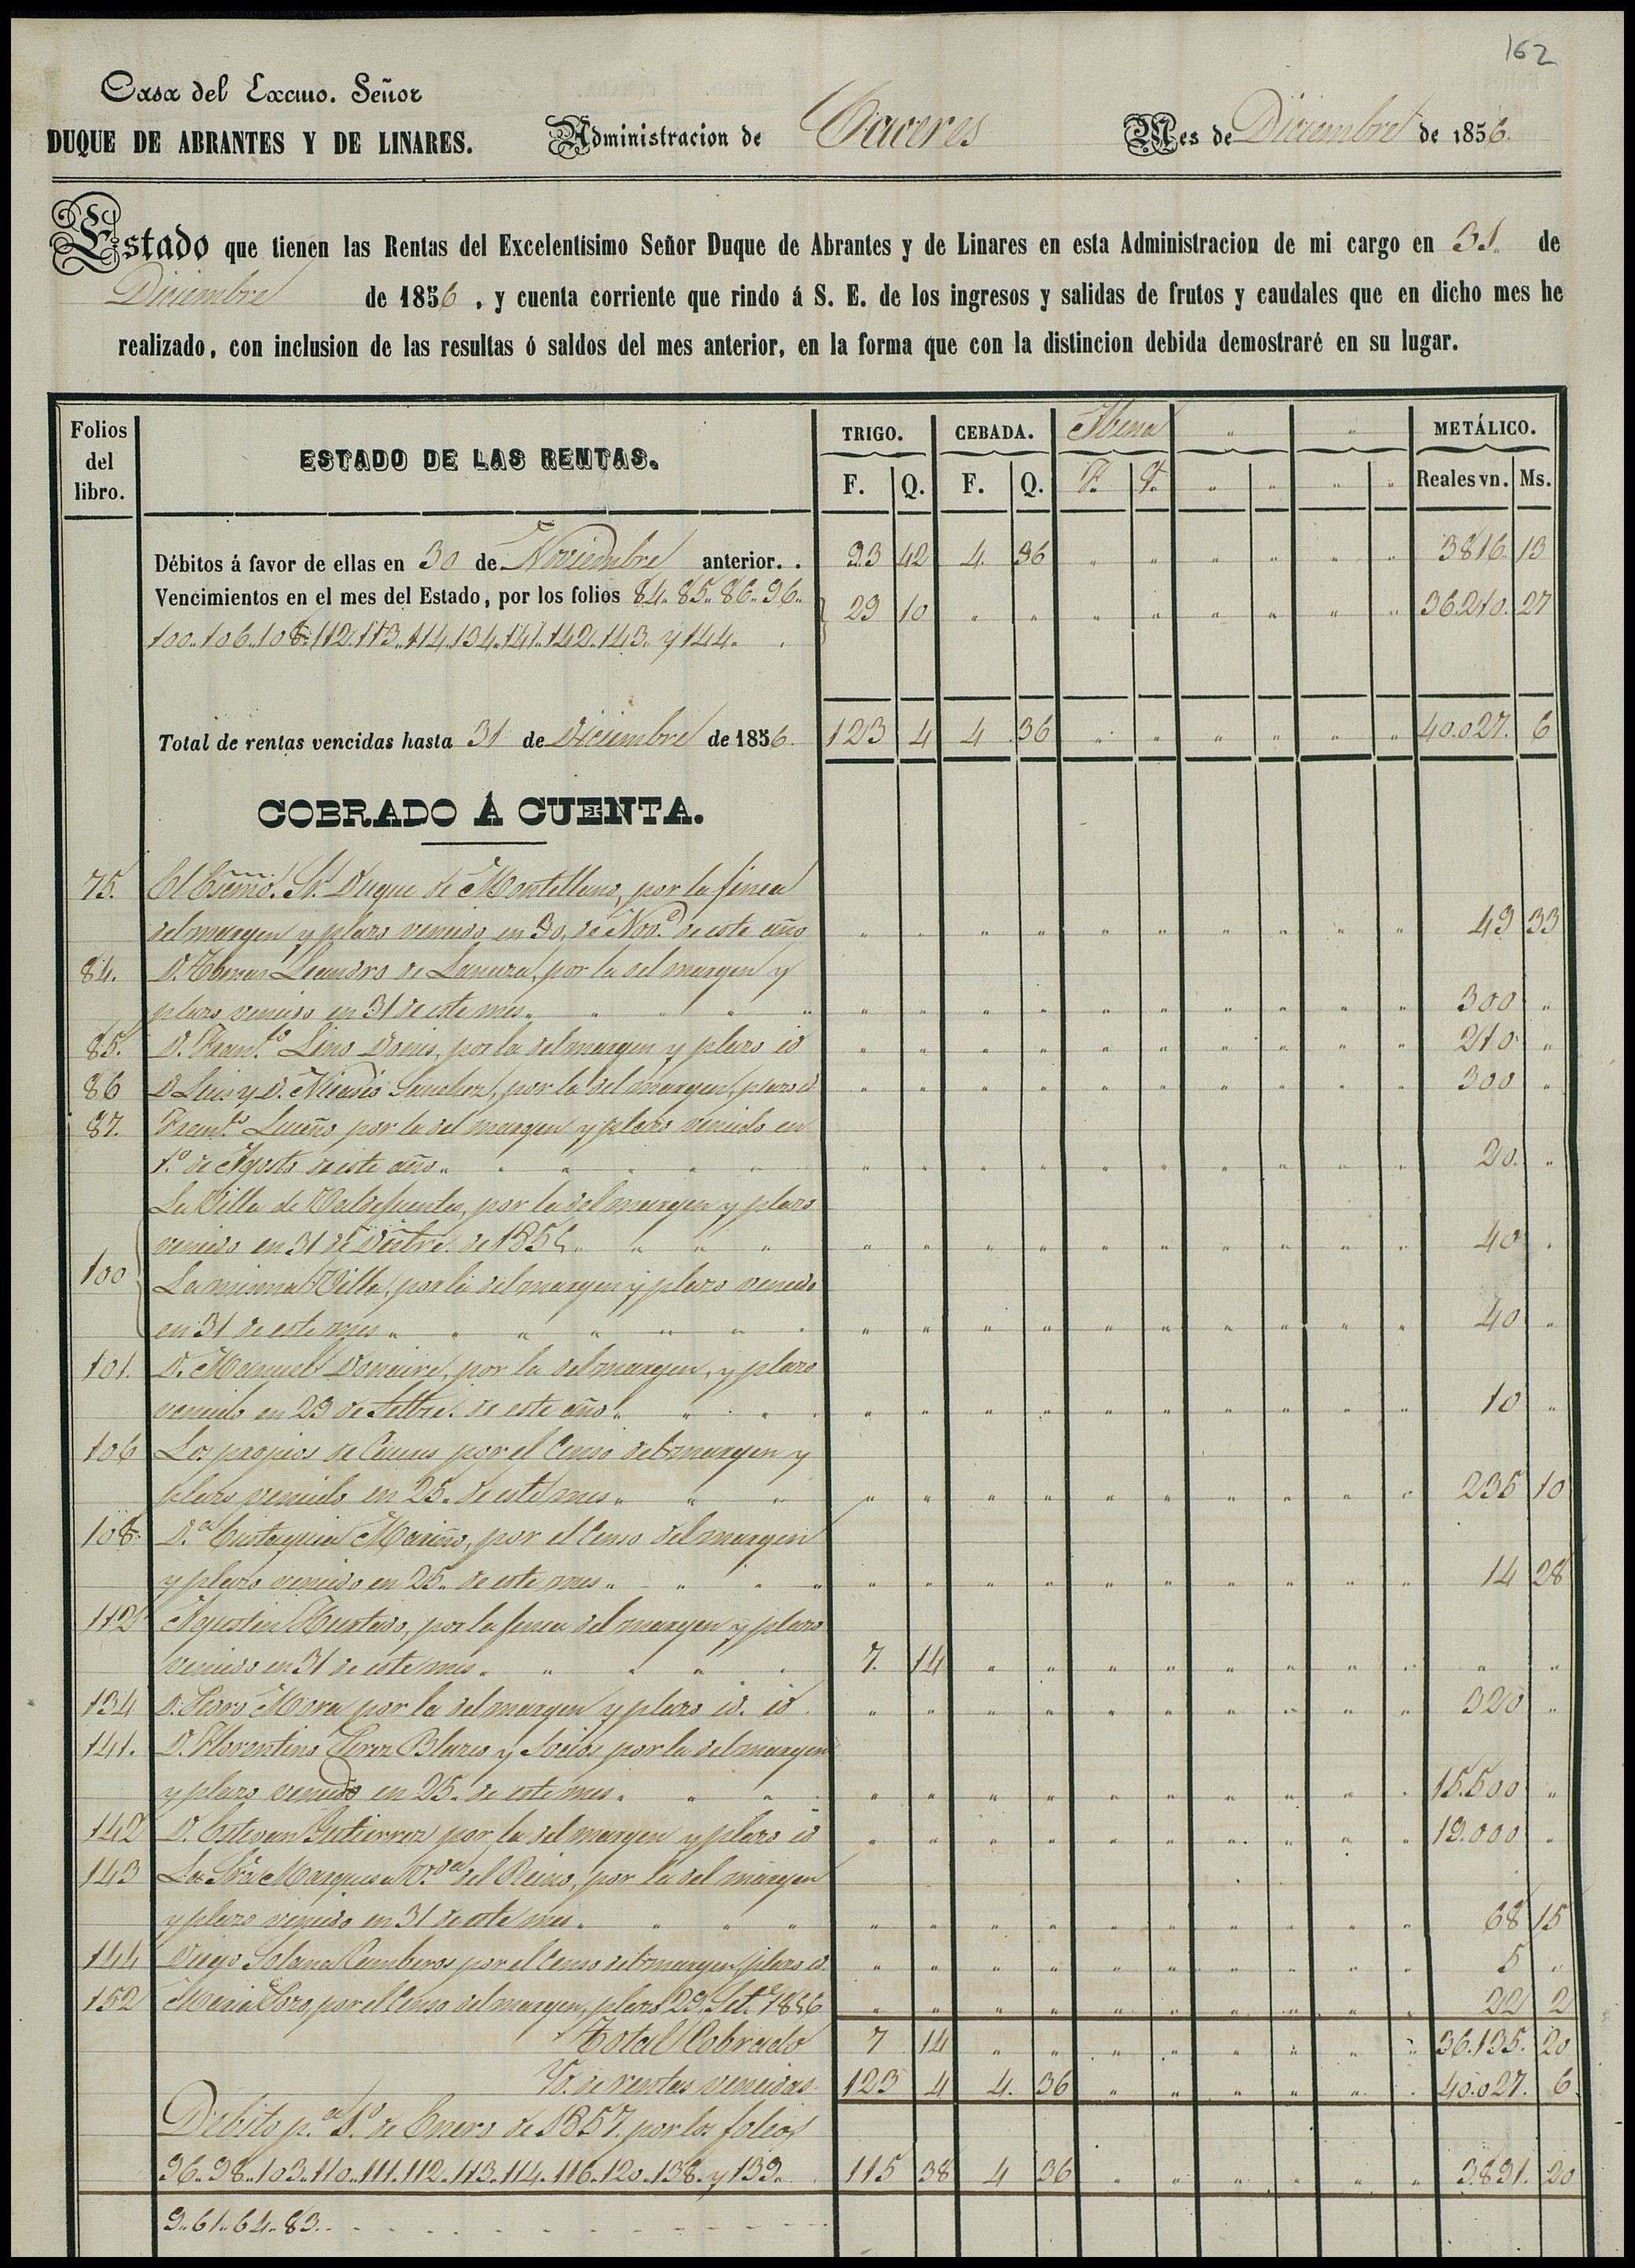 162
Casa del Excmo. Señor
DUQUE DE ABRANTES Y DE LINARES. Administracion de Caceres Mes de Diciembre de 1856.
Estado que tienen las Rentas del Excelentisimo Señor Duque de Abrantes y de Linares en esta Administracion de mi cargo en 31. de
Diciembre de 1856, y cuenta corriente que rindo á S. E. de los ingresos y salidas de frutos y caudales que en dicho mes he
realizado, con inclusion de las resultas ó saldos del mes anterior, en la forma que con la distincion debida demostraré en su lugar.
Folios del libro. ESTADO DE LAS RENTAS. TRIGO. CEBADA. Abena " " METÁLICO.
F. Q. F. Q. F. Q. " " " " Reales vn. Ms.
Débitos á favor de ellas en 30 de Noviembre anterior. . 93 42 4. 36 " " " " " " 3816. 13
Vencimientos en el mes del Estado, por los folios 84.. 85.. 86.. 96.. 29 10 " " " " " " " " 36.210. 27
100.. 106.. 108.. 112. 113.. 114.. 134.. 141.. 142.. 143. y 144.
Total de rentas vencidas hasta 31 de Diciembre de 1856. 123 4 4 36 " " " " " " 40.027. 6
COBRADO Á CUENTA.
75. El Escmo. Sr. Duque de Montellano, por la finca
del margen y plazo vencido en 30, de Nov.e de este año " " " " " " " " " " 49 33
84. D. Tomas Leandro de , por la del margen y
plazo vencido en 31 de este mes " " " " " " " " " " 300 "
85. D. Fran.co Lino , por la del margen y plazo id " " " " " " " " " " 210 "
86 D. Luis y D. Sanchez, por la del margen, plazo id " " " " " " " " " " 300 "
87. Fran.co Luceño por la del margen y plazo vencido en
1.o de Agosto de este año " " " " " " " " " " 20. "
La Villa de Valdefuentes, por la del margen y plazo
vencido en 31 de de " " " " " " " " " " 40 "
100 La misma Villa, por la del margen y plazo vencido
en 31 de este mes " " " " " " " " " " 40 "
101. D. Manuel Donaire, por la del margen, y plazo
vencido en 29 de Setbre. de este año " " " " " " " " " " 10 "
106 Los propios de Cáceres por el Censo del margen y
plazo vencido en 25.. de este mes " " " " " " " " " " 235 10
108. D.a Eustaquia Mariño, por el Censo del margen
y plazo vencido en 25.. de este mes " " " " " " " " " " 14 28
112 Agustin Hurtado, por la finca del margen y plazo
vencido en 31 de este mes 7. 14 " " " " " " " " " "
134 D. Pedro Mora por la del margen y plazo id. id " " " " " " " " " " 320 "
141. D. Florentino Perez Blazco y Socios por la del margen
y plazo vencido en 25.. de este mes " " " " " " " " " " 15.500 "
142 D. Estevan Gutierrez por la del margen y plazo id " " " " " " " " " " 19.000 "
143 La Sra. Marquesa V.da del Reino, por la del margen
y plazo vencido en 31 de este mes " " " " " " " " " " 68 15
144 Diego Solana Camberos por el Censo del margen, plazo id " " " " " " " " " " 5 "
152 Maria , por el Censo del margen, plazo 29. Set.e 1856 " " " " " " " " " " 22 2
Total Cobrado 7 14 " " " " " " " " 36.135. 20
Yd. de rentas vencidas. 123 4 4. 36 " " " " " " 40.027. 6
Debito p.a 1.o de Enero de 1857. por los folios
96.. 98.. 103.. 110.. 111. 112.. 113. 114. 116. 120.. 138. y 139. 115 38 4 36 " " " " " " 3.891. 20
9.. 61.. 64.. 83. . . . . . . . . . .